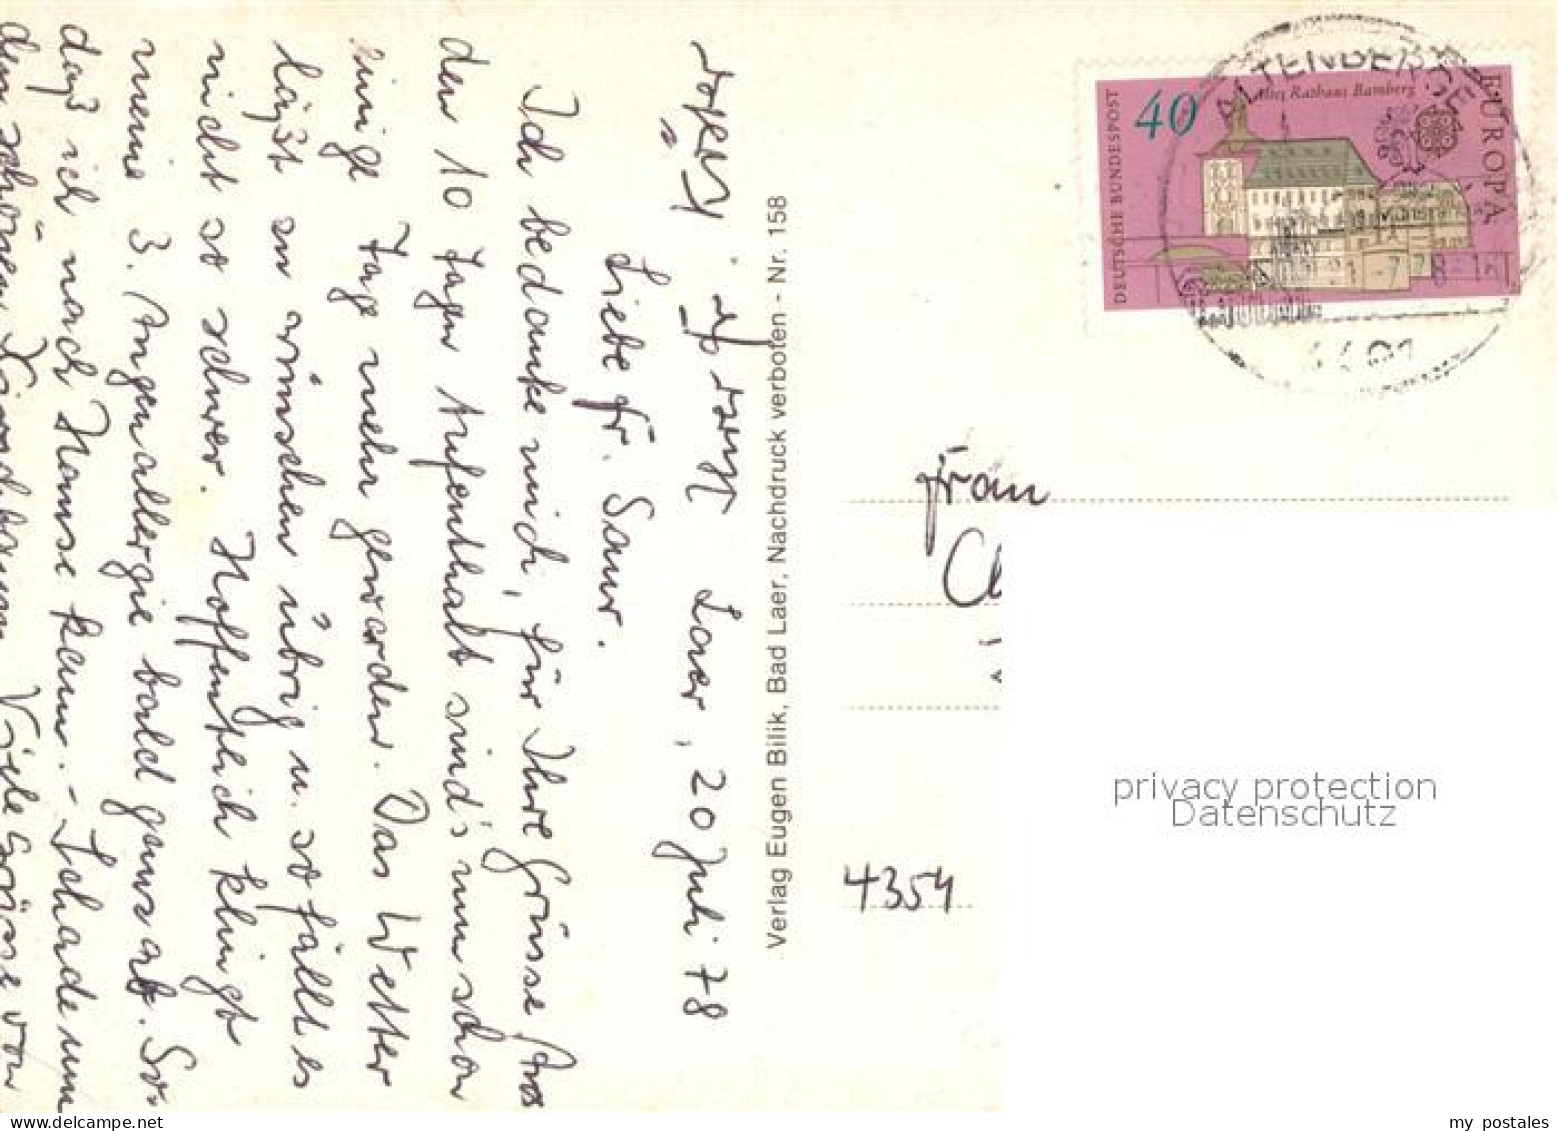 Laer, 20 Juli 78
Liebe Fr. Saur.
Ich bedanke mich, für Ihre Grüsse. Aus
den 10 Tagen Aufenthalt sind's nun schon
einige Tage mehr geworden. Das Wetter
läßt zu wünschen übrig u. so fällt es
nicht so schwer. Hoffentlich klingt
meine 3. Augenallergie bald ganz ab. So-
daß ich nach Hause kann. - Schade um
den schönen Viele Grüsse von
Verlag Eugen Bilik, Bad Laer, Nachdruck verboten - Nr. 158
DEUTSCHE BUNDESPOST
40
Altes Rathaus Bamberg
EUROPA
ALTENBERGE
Frau
4354
privacy protection
Datenschutz
my postales